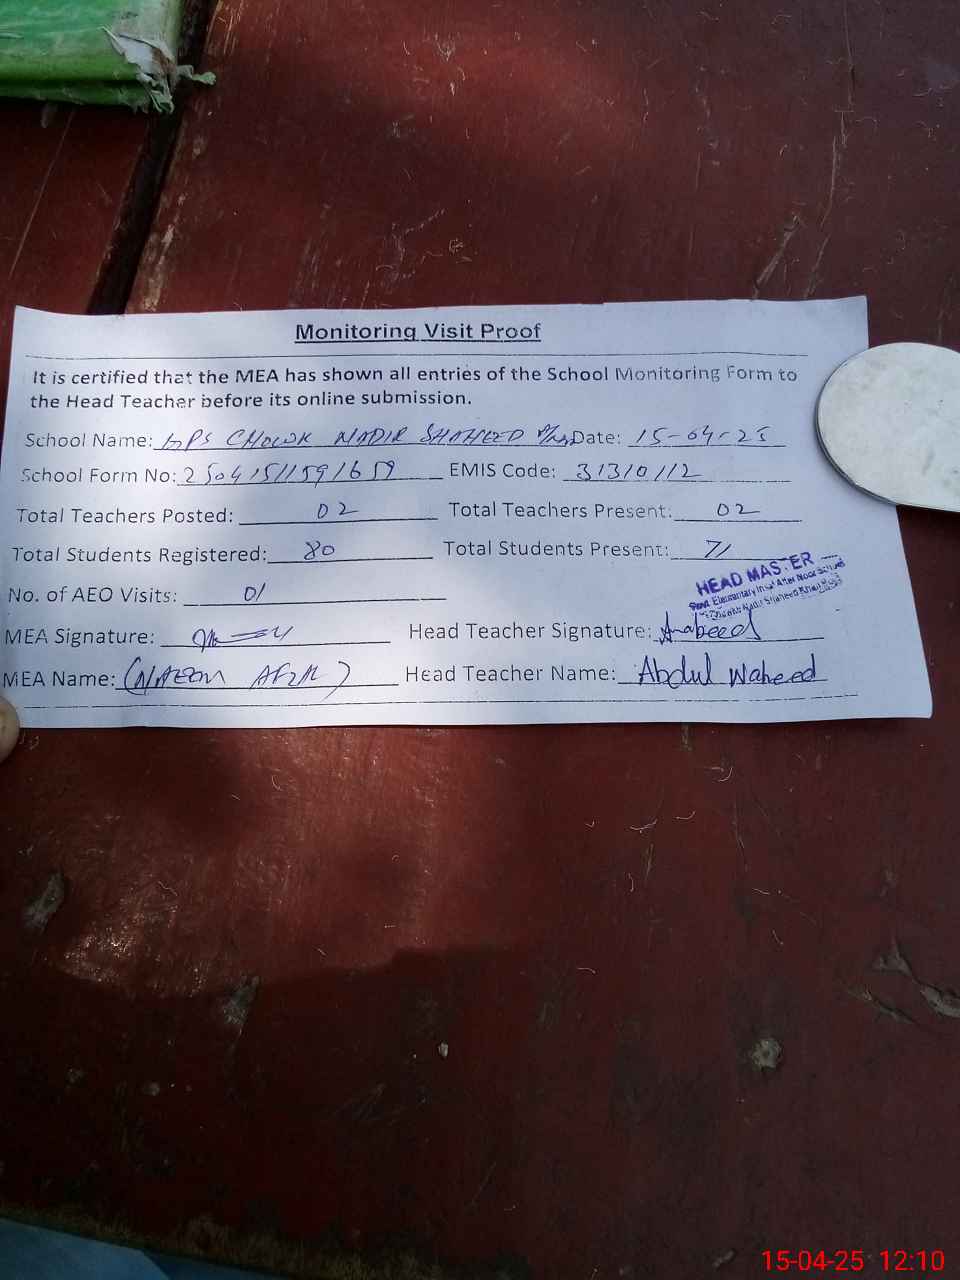 Monitoring Visit Proof
It is certified that the MEA has shown all entries of the School Monitoring Form to
the Head Teacher before its online submission.
School Name: GPS CHOWK NADIR SHAHEED Date: 15-04-25
School Form No: 25041511591659 EMIS Code: 31310112
Total Teachers Posted: 02 Total Teachers Present: 02
Total Students Registered: 80 Total Students Present: 71
HEAD MASTER
Govt. Elementary After Noor School
Chowk Nadir Shaheed
No. of AEO Visits: 01
MEA Signature: Head Teacher Signature:
MEA Name: (NAEEM ) Head Teacher Name: Abdul Waheed
15-04-25 12:10